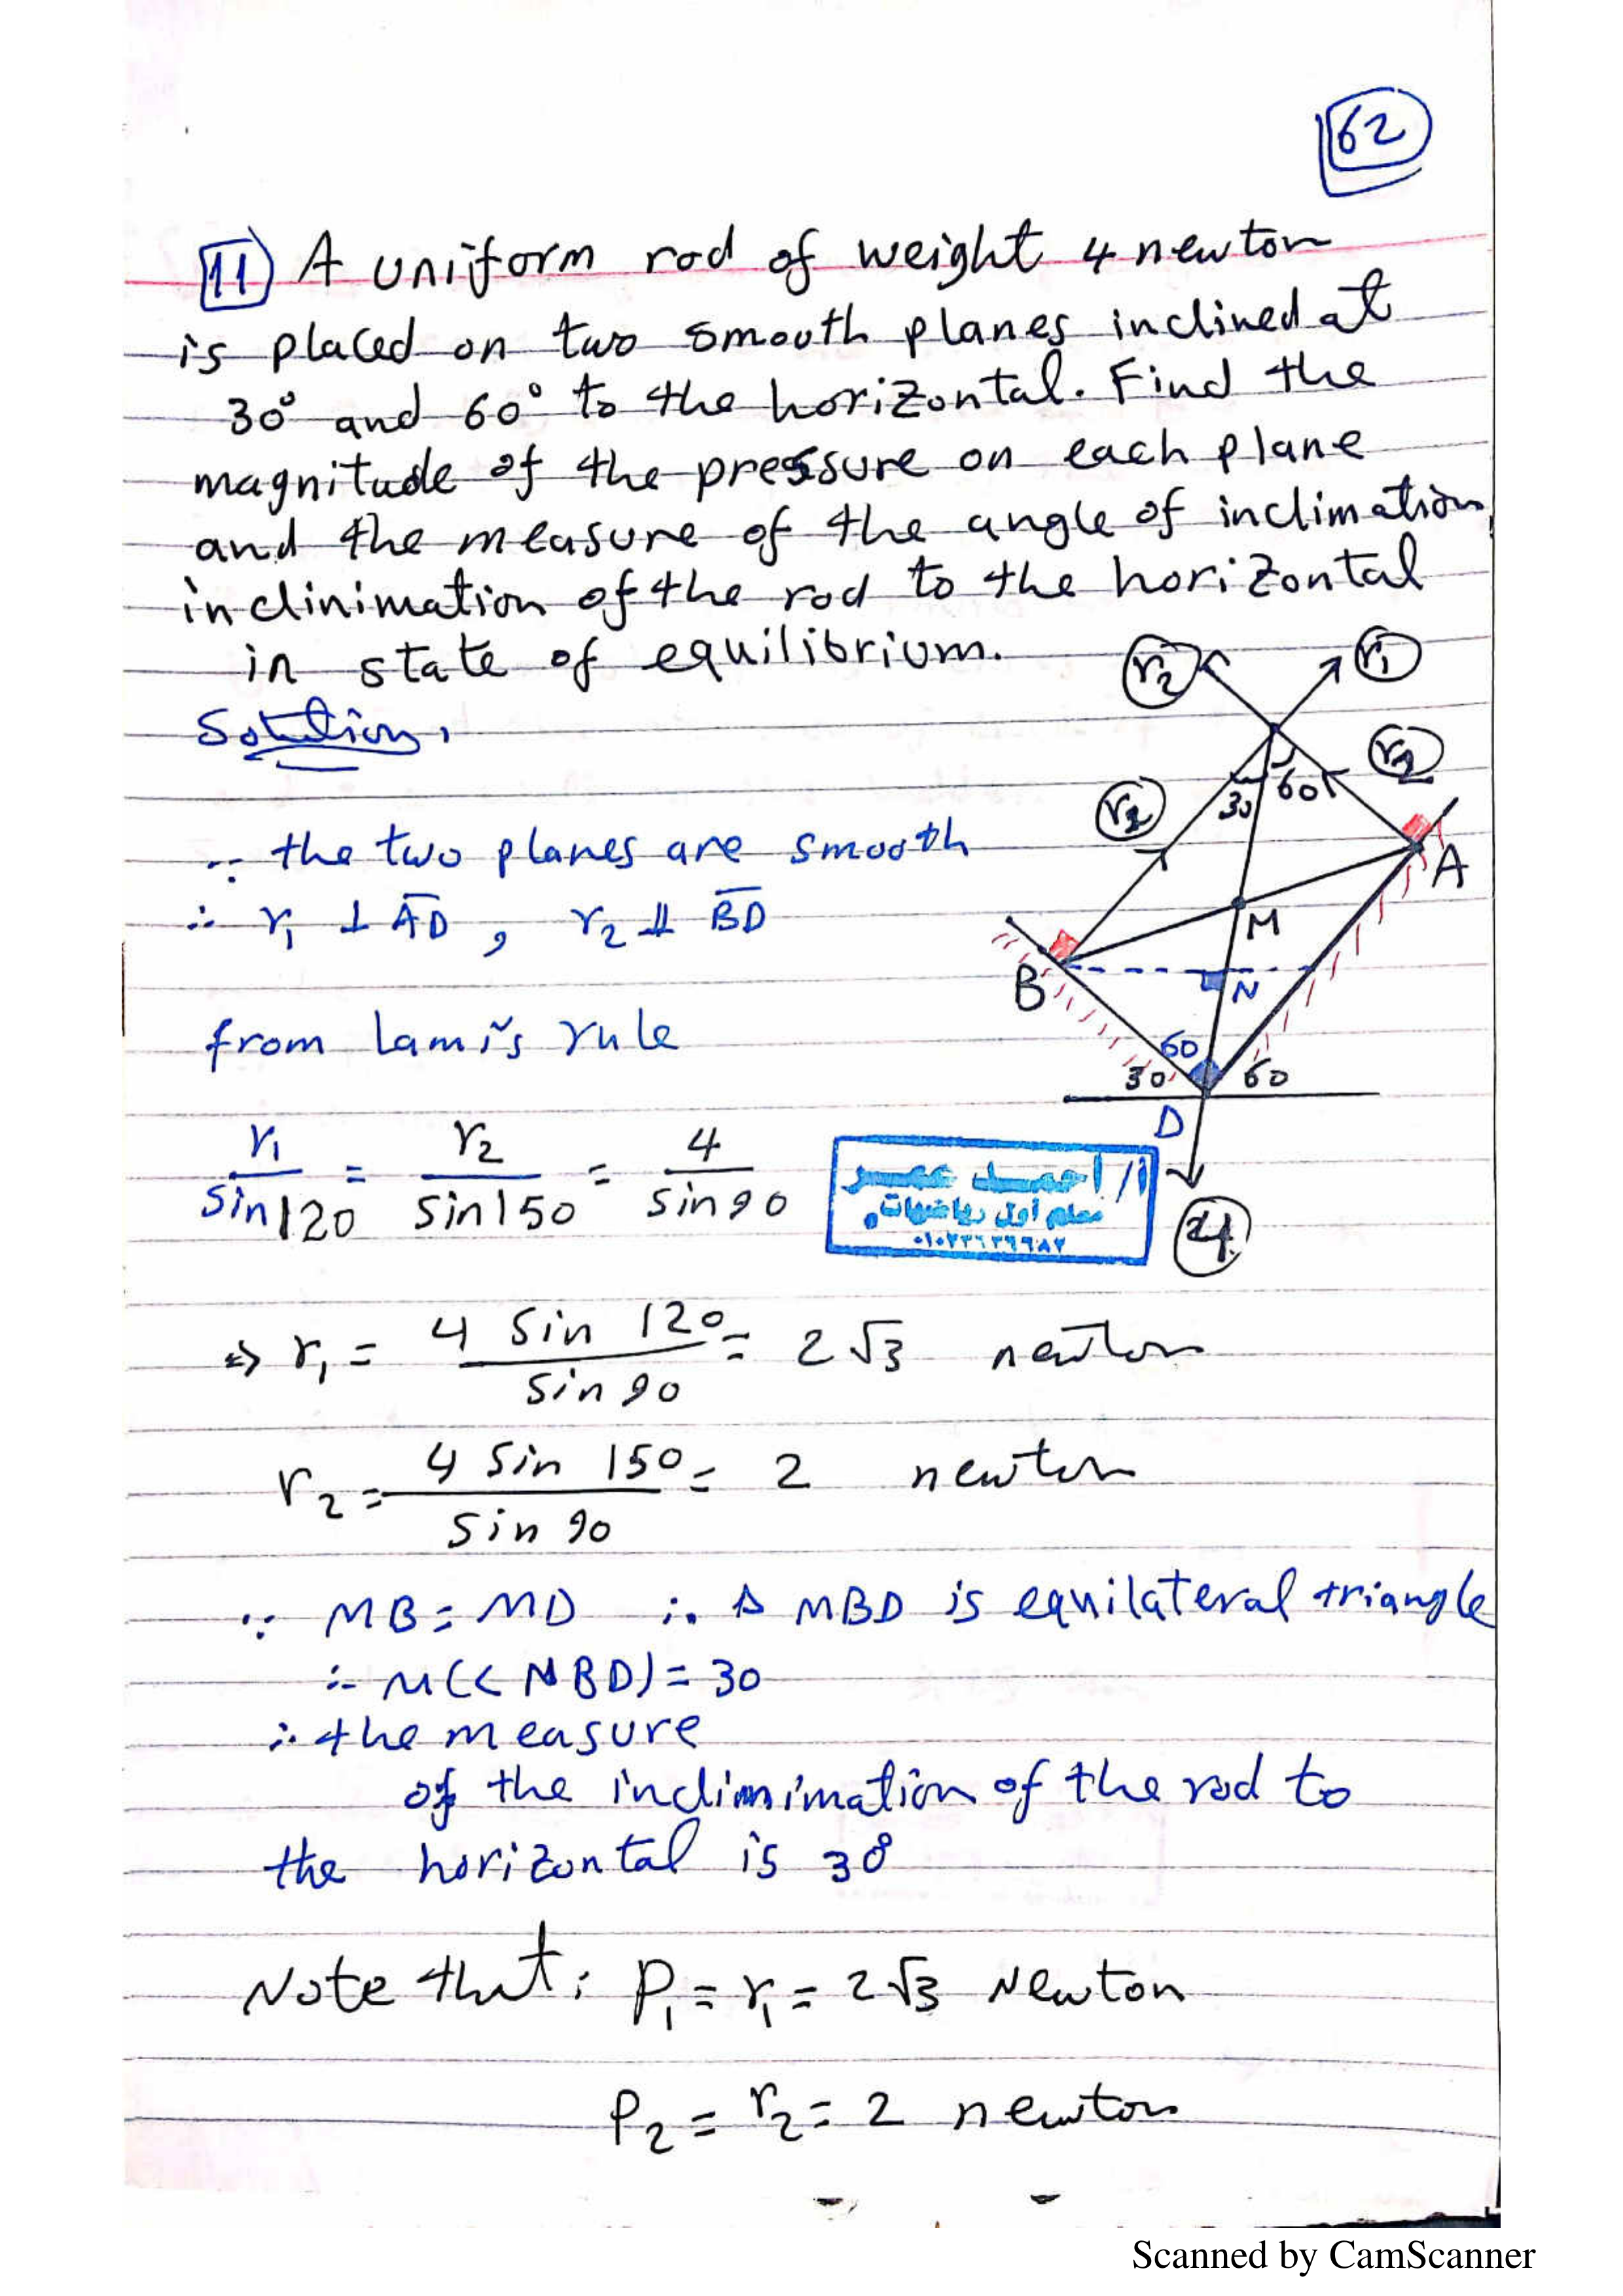 62
11 A uniform rod of weight 4 newton
is placed on two smooth planes inclined at
30° and 60° to the horizontal. Find the
magnitude of the pressure on each plane
and the measure of the angle of inclimation
inclinimation of the rod to the horizontal
in state of equilibrium.
Solution,
r2 r1
r2
30 60
r2
A
M
B
N
60
30 60
D
4
∵ the two planes are smooth
∴ r₁ ⊥ AD , r₂ ⊥ BD
from lami's rule
r₁/sin120 = r₂/sin150 = 4/sin90
أ/ أحمد عمر
معلم أول رياضيات
⇒ r₁ = 4 sin 120/sin 90 = 2√3 newton
r₂ = 4 sin 150/sin 90 = 2 newton
∵ MB = MD ∴ Δ MBD is equilateral triangle
∴ m(< NBD) = 30
∴ the measure
of the inclinimation of the rod to
the horizontal is 30°
Note that: P₁ = r₁ = 2√3 Newton
P₂ = r₂ = 2 newton
Scanned by CamScanner